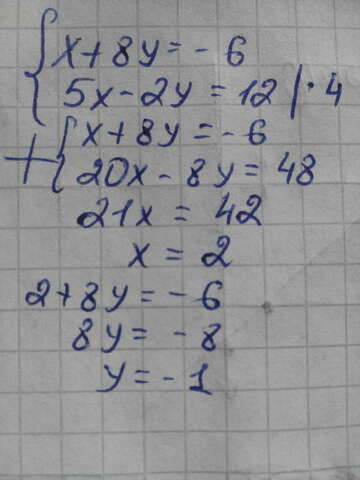 x + 8y = - 6
5x - 2y = 12 | · 4
+ x + 8y = - 6
20x - 8y = 48
21x = 42
x = 2
2 + 8y = - 6
8y = - 8
y = - 1